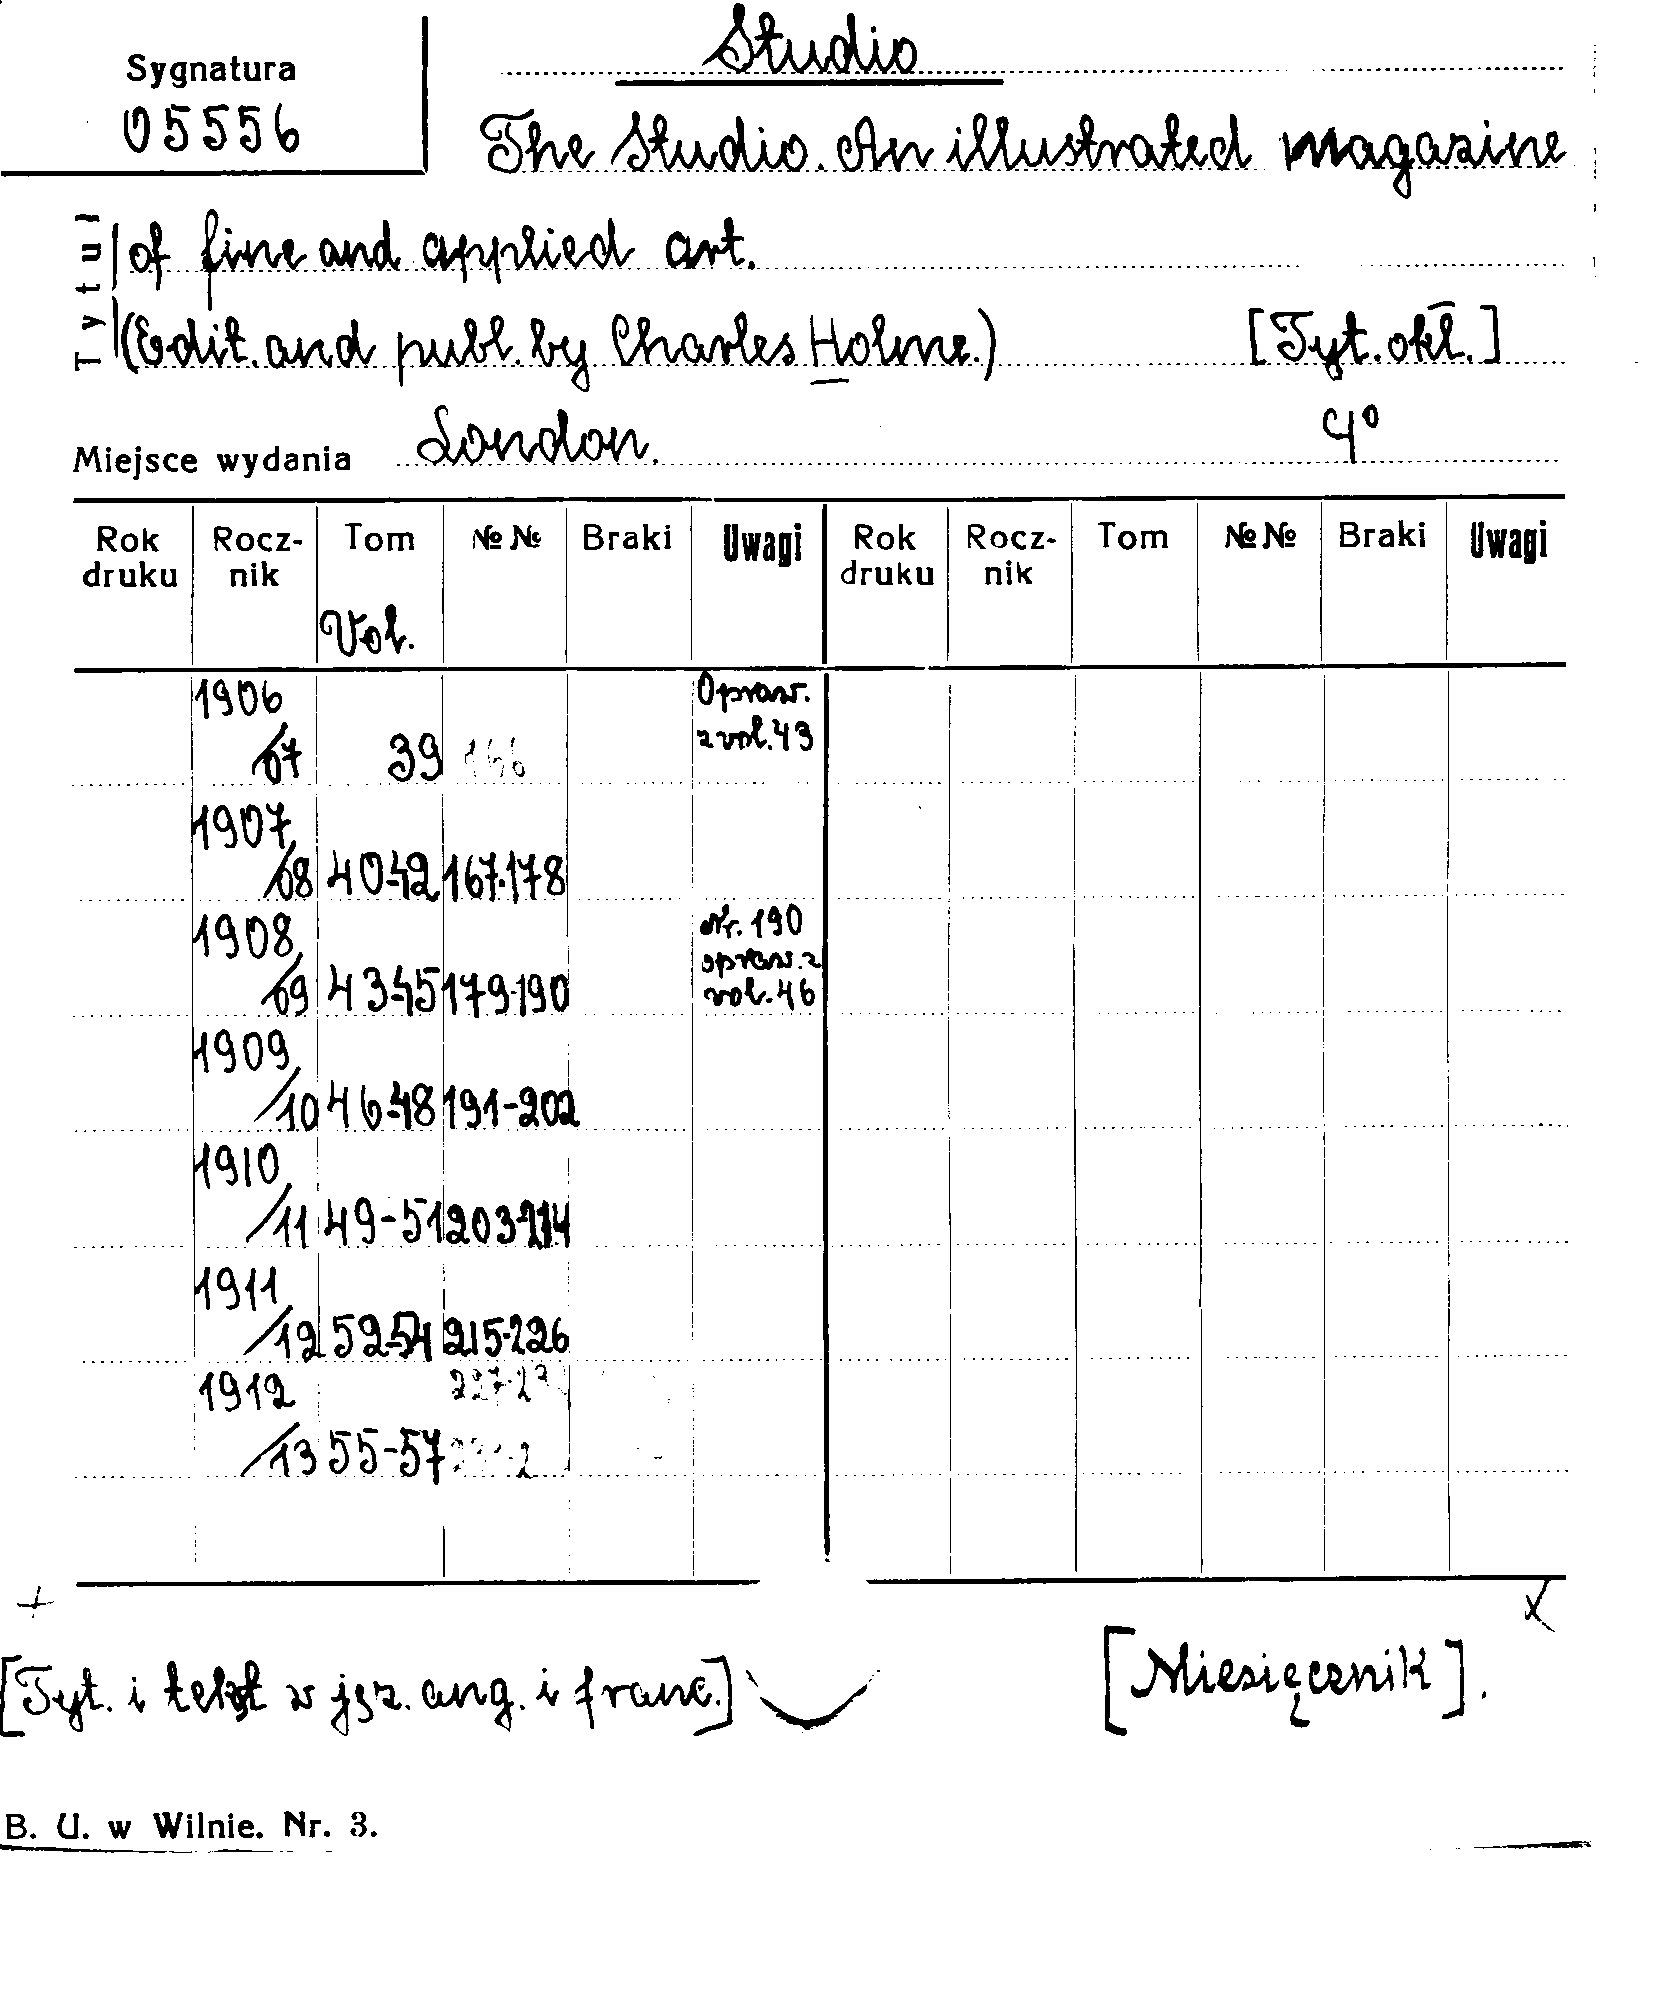 Studio
Sygnatura
05556
The Studio. An illustrated magazine
Tytuł
of fine and applied art.
(Edit. and publ. by Charles Holme.) [Tyt. okł.]
Miejsce wydania London. 4°
Rok druku Rocz- nik Tom №№ Braki Uwagi Rok druku Rocz- nik Tom №№ Braki Uwagi
Vol.
1906 Opraw.
/07 39 166 z vol. 43
1907
/08 40-42 167-178
1908 Nr. 190
opraw. z
/09 43-45 179-190 vol. 46
1909
/10 46-48 191-202
1910
/11 49-51 203-214
1911
/12 52-54 215-226
1912
/13 55-57
[Tyt. i tekst w jęz. ang. i franc.] [Miesięcznik].
B. U. w Wilnie. Nr. 3.